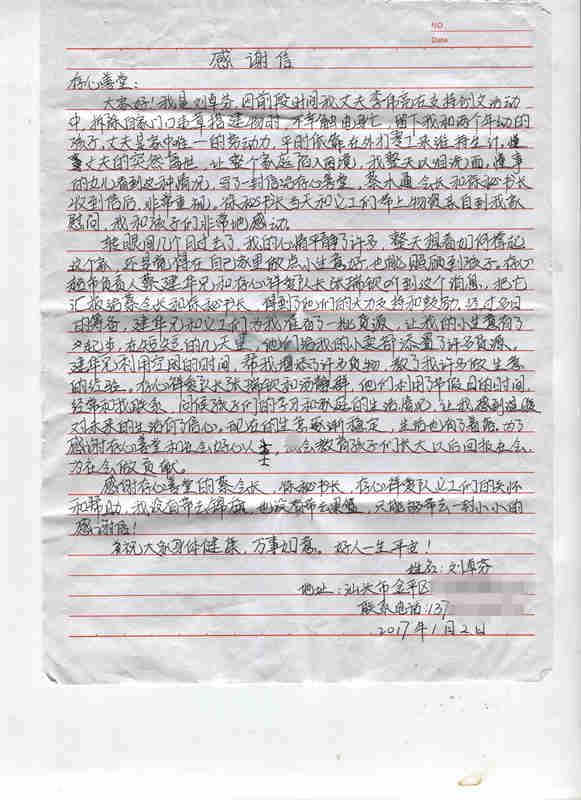 NO
Date
感谢信
存心善堂：
大家好！我是刘卓芬，因前段时间我丈夫李伟亮在支持创文活动
中，拆除自家门口违章搭建物时，不幸触电身亡，留下我和两个年幼的
孩子，丈夫是家中唯一的劳动力，平时依靠在外打零工来维持生计，
丈夫的突然离世，让整个家庭陷入困境，我整天以泪洗面，懂事
的女儿看到这种情况，写了一封信给存心善堂，蔡木通会长和秘书长
收到信后，非常重视，秘书长当天和义工们带上物资亲自到我家
慰问，我和孩子们非常地感动。
转眼间几个月过去了，我的心情平静了许多，整天想着如何撑起
这个家，还是觉得在自己家里做点小生意好，也能照顾到孩子。存心
负责人蔡建华兄和存心祥客队长张瑞钦听到这个消息，把它
汇报给蔡会长和秘书长，得到了他们的大力支持和鼓励，经过多日
的筹备，建华兄和义工们为我准备了一批货源，让我的小生意有了
起步，在短短的几天里，他们给我的小卖部添置了许多货源。
建华兄利用空闲的时间，帮我增添了许多货物，教了我许多做生意
的经验。存心队长张瑞钦和汤静群，他们利用节假日的时间，
经常和我联系，问候孩子们的学习和家庭的生活情况，让我感到温暖
对未来的生活有了信心。现在的生意渐渐稳定，生活也有了着落，为了
感谢存心善堂和社会好心人士，会教育孩子们长大以后回报社会，
为社会做贡献。
感谢存心善堂的蔡会长、秘书长、存心队义工们的关怀
和帮助，我没有带去锦旗，也没有带去果篮，只能够带去一封小小的
感谢信！
祝大家身体健康，万事如意。好人一生平安！
姓名：刘卓芬
地址：汕头市金平区
联系电话：137
2017年1月2日